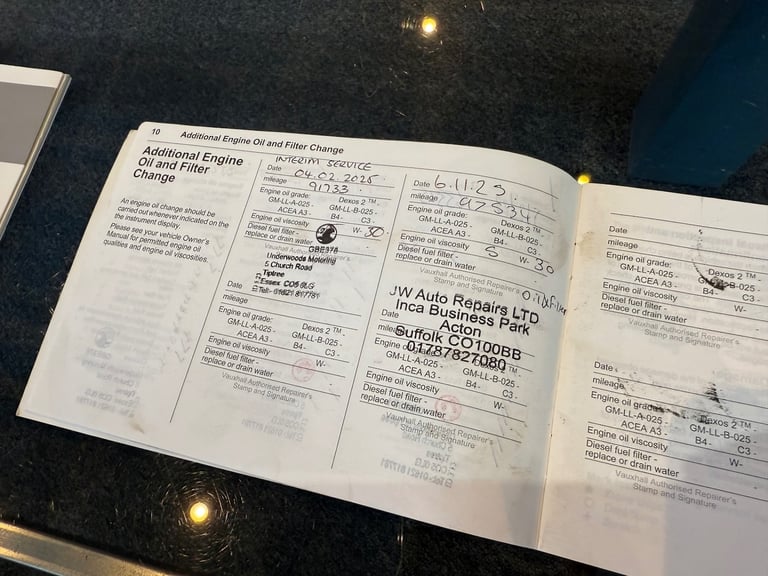 10 Additional Engine Oil and Filter Change
Additional Engine
Oil and Filter
Change
An engine oil change should be
carried out whenever indicated on
the instrument display.
Please see your vehicle Owner's
Manual for permitted engine oil
qualities and engine oil viscosities.
INTERIM SERVICE
Date 04.02.2025
mileage 91733
Engine oil grade: Dexos 2 ™ -
GM-LL-A-025 - GM-LL-B-025 -
ACEA A3 - B4- C3 -
Engine oil viscosity W- 30
Diesel fuel filter -
replace or drain water
GBE376
Vauxhall Authorised
Underwoods Motoring
5 Church Road
Tiptree
Essex CO5 0LG
Tel:- 01621 817781
Date
mileage
Engine oil grade: Dexos 2 ™ -
GM-LL-A-025 - GM-LL-B-025 -
ACEA A3 - B4- C3 -
Engine oil viscosity W-
Diesel fuel filter -
replace or drain water
Vauxhall Authorised Repairer's
Stamp and Signature
Date 6.11.25
mileage 97534
Engine oil grade: Dexos 2 ™ -
GM-LL-A-025 - GM-LL-B-025 -
ACEA A3 - B4- C3 -
Engine oil viscosity 5 W- 30
Diesel fuel filter -
replace or drain water
Vauxhall Authorised Repairer's
Stamp and Signature
JW Auto Repairs LTD
Inca Business Park
Acton
Suffolk CO100BB
01787827080
Date
mileage
Engine oil grade: Dexos 2 ™ -
GM-LL-A-025 - GM-LL-B-025 -
ACEA A3 - B4- C3 -
Engine oil viscosity W-
Diesel fuel filter -
replace or drain water
Vauxhall Authorised Repairer's
Stamp and Signature
Date
mileage
Engine oil grade: Dexos 2 ™ -
GM-LL-A-025 - GM-LL-B-025 -
ACEA A3 - B4- C3 -
Engine oil viscosity W-
Diesel fuel filter -
replace or drain water
Vauxhall Authorised Repairer's
Stamp and Signature
Date
mileage
Engine oil grade: Dexos 2 ™ -
GM-LL-A-025 - GM-LL-B-025 -
ACEA A3 - B4- C3 -
Engine oil viscosity W-
Diesel fuel filter -
replace or drain water
Vauxhall Authorised Repairer's
Stamp and Signature